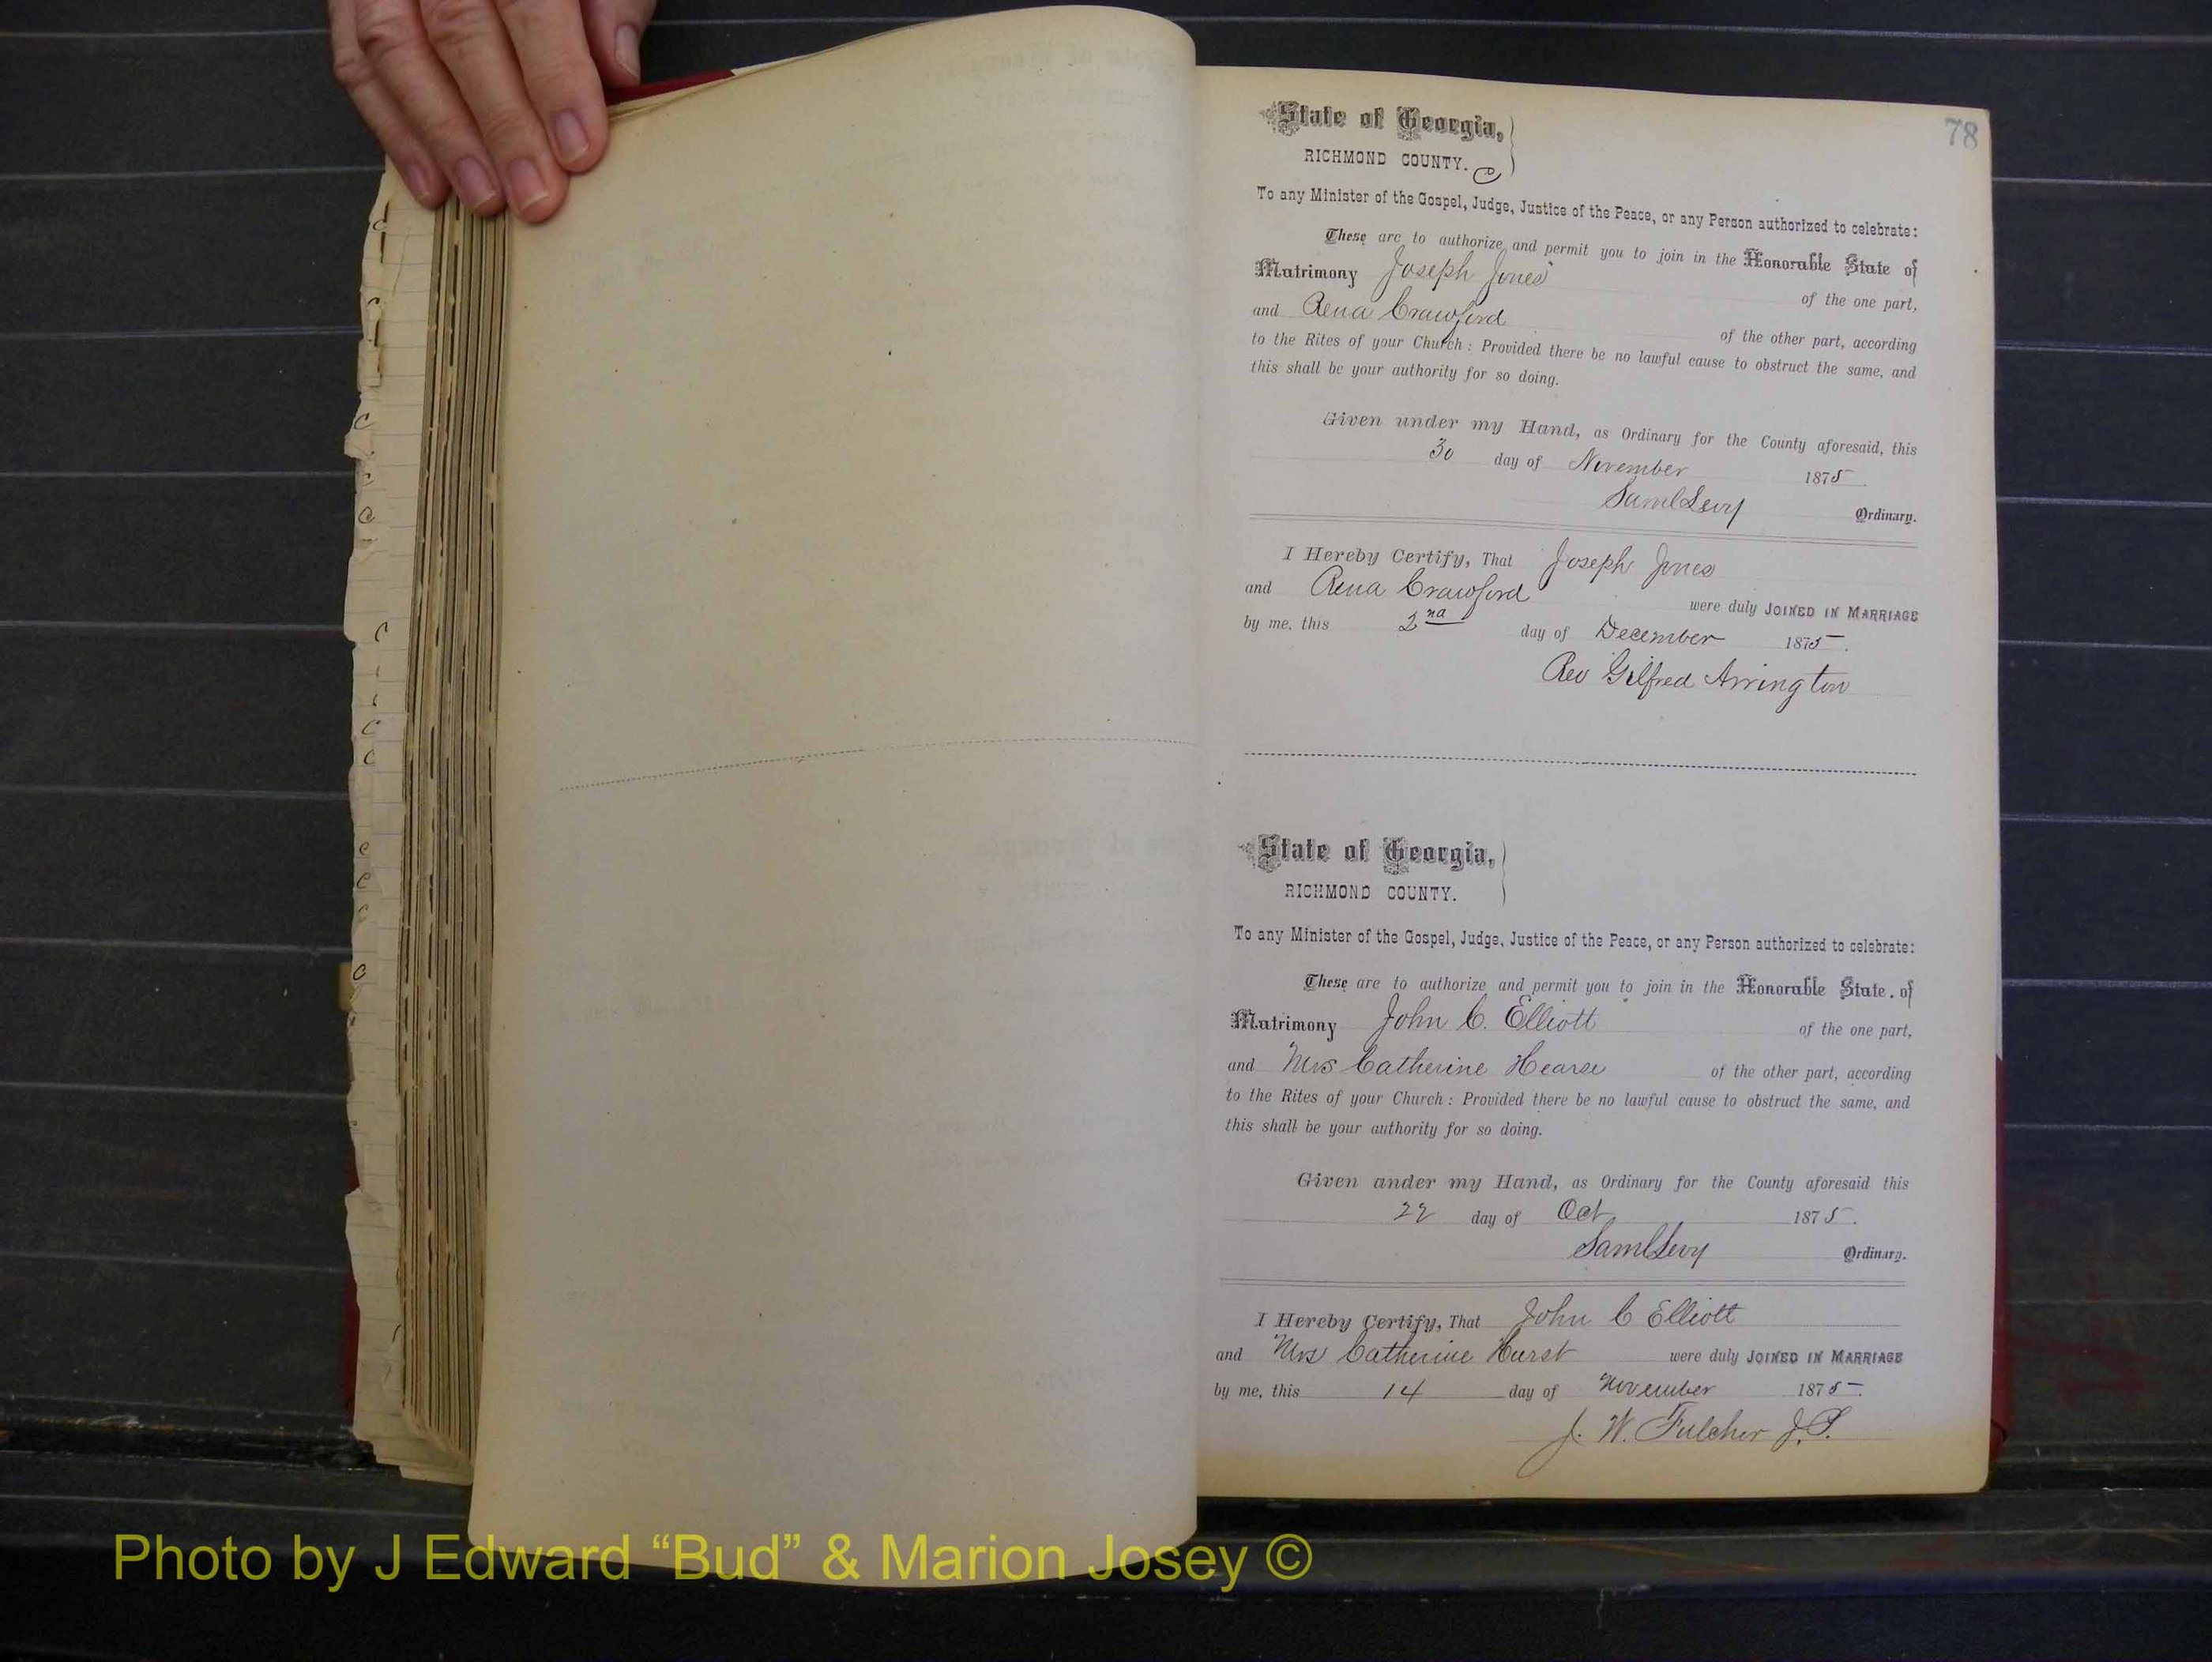 78
State of Georgia,
RICHMOND COUNTY. C
To any Minister of the Gospel, Judge, Justice of the Peace, or any Person authorized to celebrate:
These are to authorize and permit you to join in the Honorable State of
Matrimony Joseph Jones of the one part,
and Rena Crawford of the other part, according
to the Rites of your Church: Provided there be no lawful cause to obstruct the same, and
this shall be your authority for so doing.
Given under my Hand, as Ordinary for the County aforesaid, this
30 day of November 1875.
Saml Levy Ordinary.
I Hereby Certify, That Joseph Jones
and Rena Crawford were duly JOINED IN MARRIAGE
by me, this 2nd day of December 1875.
Rev Gilfred Arrington
State of Georgia,
RICHMOND COUNTY.
To any Minister of the Gospel, Judge, Justice of the Peace, or any Person authorized to celebrate:
These are to authorize and permit you to join in the Honorable State of
Matrimony John C. Elliott of the one part,
and Mrs Catherine Hearse of the other part, according
to the Rites of your Church: Provided there be no lawful cause to obstruct the same, and
this shall be your authority for so doing.
Given under my Hand, as Ordinary for the County aforesaid this
22 day of Oct 1875.
Saml Levy Ordinary.
I Hereby Certify, That John C Elliott
and Mrs Catherine Hurst were duly JOINED IN MARRIAGE
by me, this 14 day of November 1875.
J. W. Fulcher J.P.
Photo by J Edward “Bud” & Marion Josey ©